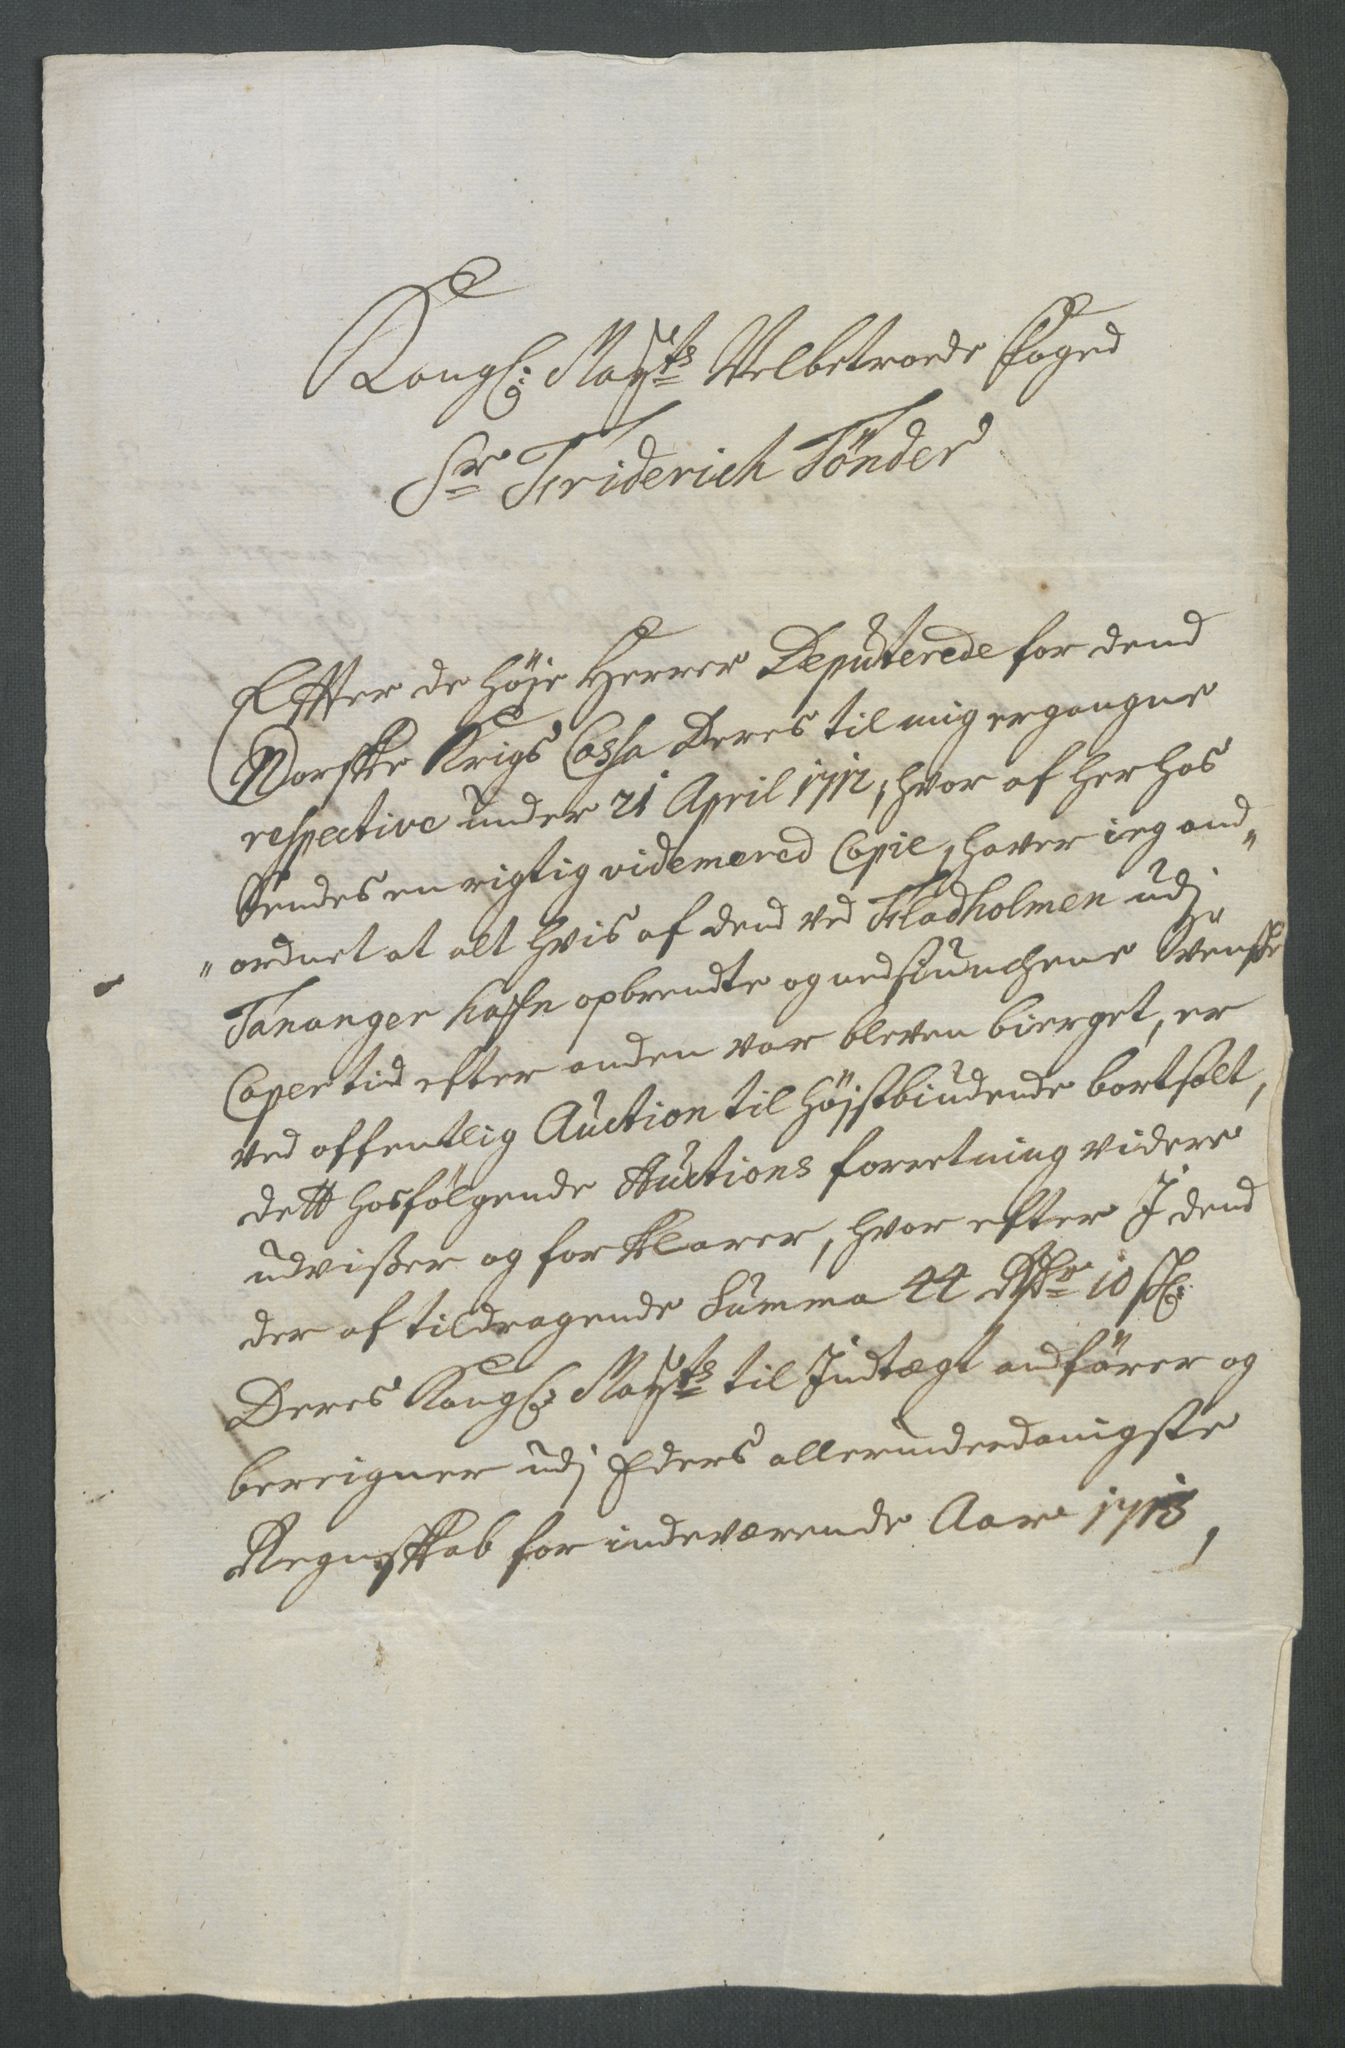 Kongl: Mayts Velbetroede Foged
Sr Friderich Tönder
Effter de höje Herrer Deputerede for dend
Norske Krigs Cassa Deres til mig ergangne
respective under 21 April 1712, hvor af herhos
Sendes en rigtig videmered Copie, haver ieg and„
„ordnet at alt hvis af dend ved Fladholmen udj
Tananger hafn opbrendte og nedsiunchene Svenske
Caper tid efter anden var bleven bierget, er
ved offentlig Auction til höjstbiudende bortsolt,
dett hosfölgende Auctions forretning videre
udvißer og forklarer, hvor efter J dend
der af tildragende Summa 44 Rdr 10 s:
Deres Kongl: Mayts til Indtægt andförer og
bereigner udj Eders allerunderdanigste
Regnskab for indeværende Aar 1713,